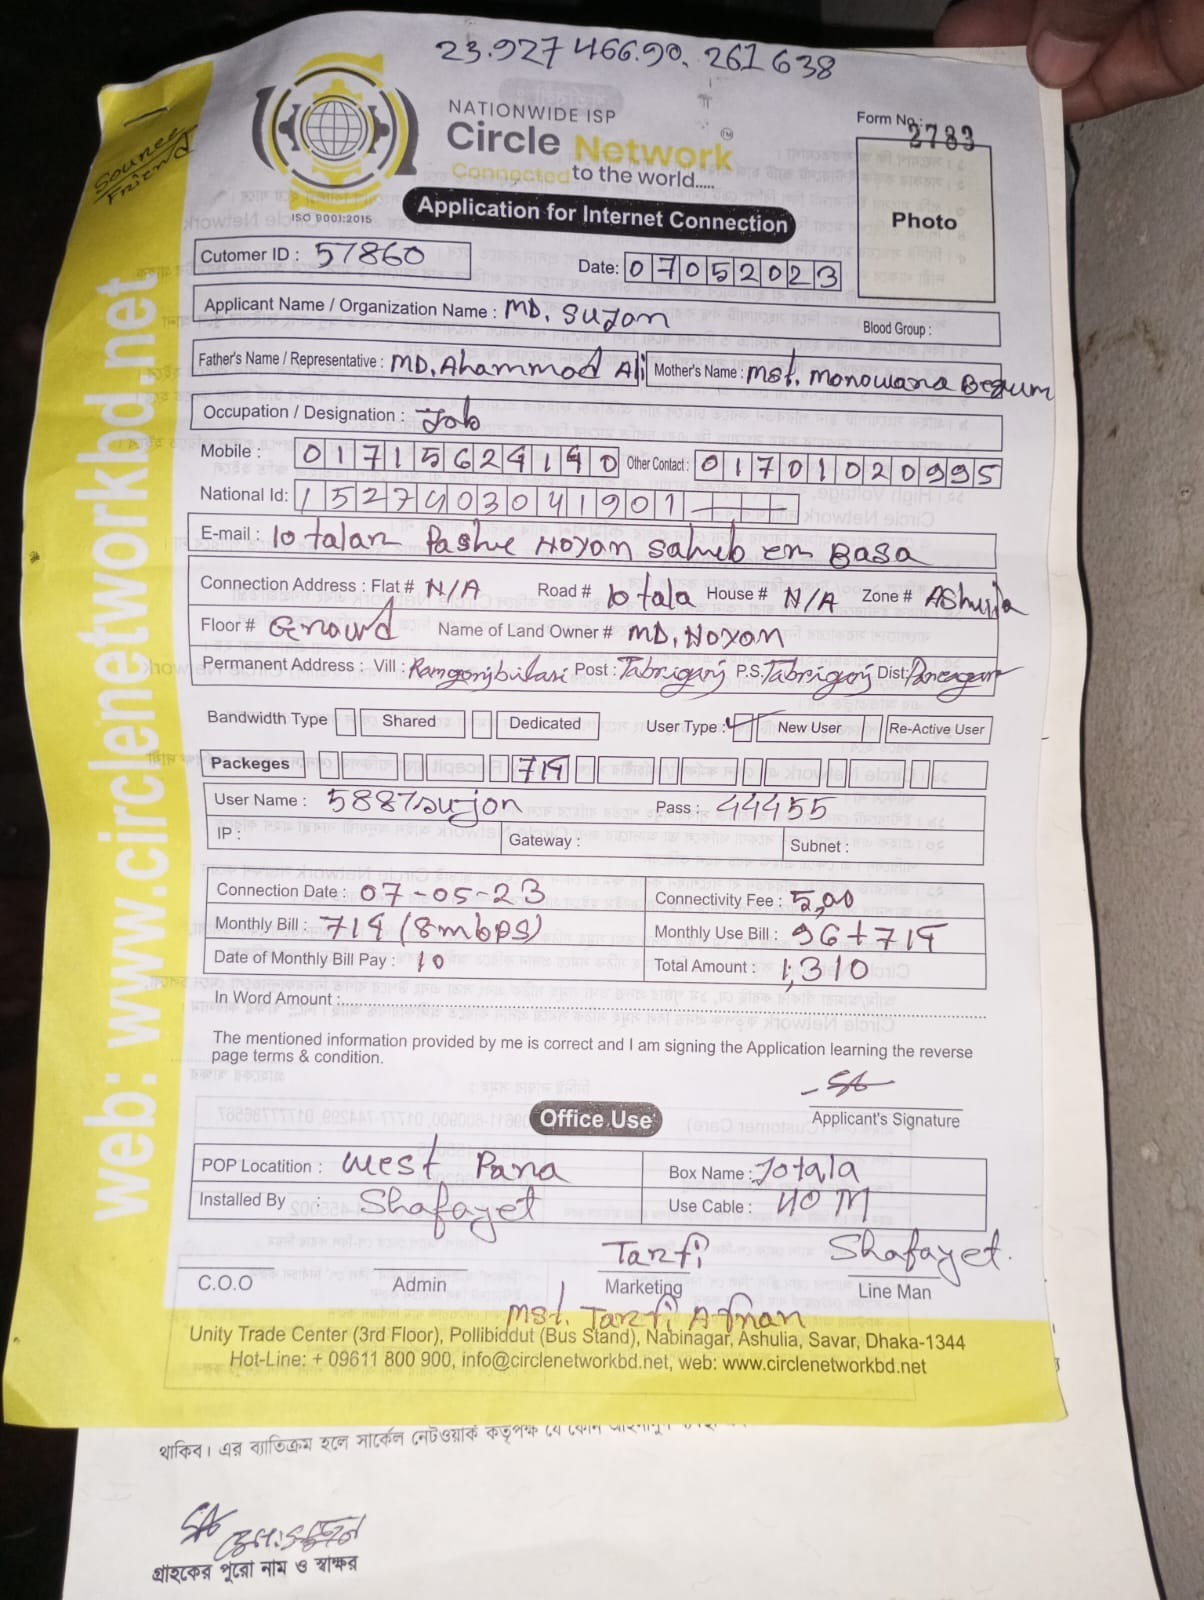 23.927466.90.261638
Sounee
Friend
NATIONWIDE ISP
Circle Network
Connected to the world.....
ISO 9001:2015
Form No.: 2783
Photo
Application for Internet Connection
Cutomer ID : 57860
Date: 07052023
Applicant Name / Organization Name : MD. Sujon
Blood Group :
Father's Name / Representative : MD. Ahammod Ali Mother's Name : Mst. Monowara Begum
Occupation / Designation : Job
Mobile : 01715624140 Other Contact : 01701020995
National Id: 1527403041901
E-mail : 10 talar Pashe Noyon Saheb er Basa
Connection Address : Flat # N/A Road # 10 tala House # N/A Zone # Ashulia
Floor # Ground Name of Land Owner # MD. Noyon
Permanent Address : Vill : Ramgonjbilasi Post : Tabriganj P.S. Tabriganj Dist:
Bandwidth Type Shared Dedicated User Type : New User Re-Active User
Packeges 714
User Name : 5887sujon Pass : 44455
IP : Gateway : Subnet :
Connection Date : 07-05-23 Connectivity Fee : 500
Monthly Bill : 714 (8mbps) Monthly Use Bill : 96+714
Date of Monthly Bill Pay : 10 Total Amount : 1,310
In Word Amount :
The mentioned information provided by me is correct and I am signing the Application learning the reverse
page terms & condition.
Applicant's Signature
Office Use
POP Locatition : West Para Box Name : 10tala
Installed By : Shafayet Use Cable : 40 M
Tarfi Shafayet.
C.O.O Admin Marketing Line Man
Mst. Tarfi Afnan
Unity Trade Center (3rd Floor), Pollibiddut (Bus Stand), Nabinagar, Ashulia, Savar, Dhaka-1344
Hot-Line: + 09611 800 900, info@circlenetworkbd.net, web: www.circlenetworkbd.net
web: www.circlenetworkbd.net
থাকিব। এর ব্যতিক্রম হলে সার্কেল নেটওয়ার্ক কতৃপক্ষ যে কোন
গ্রাহকের পুরো নাম ও স্বাক্ষর